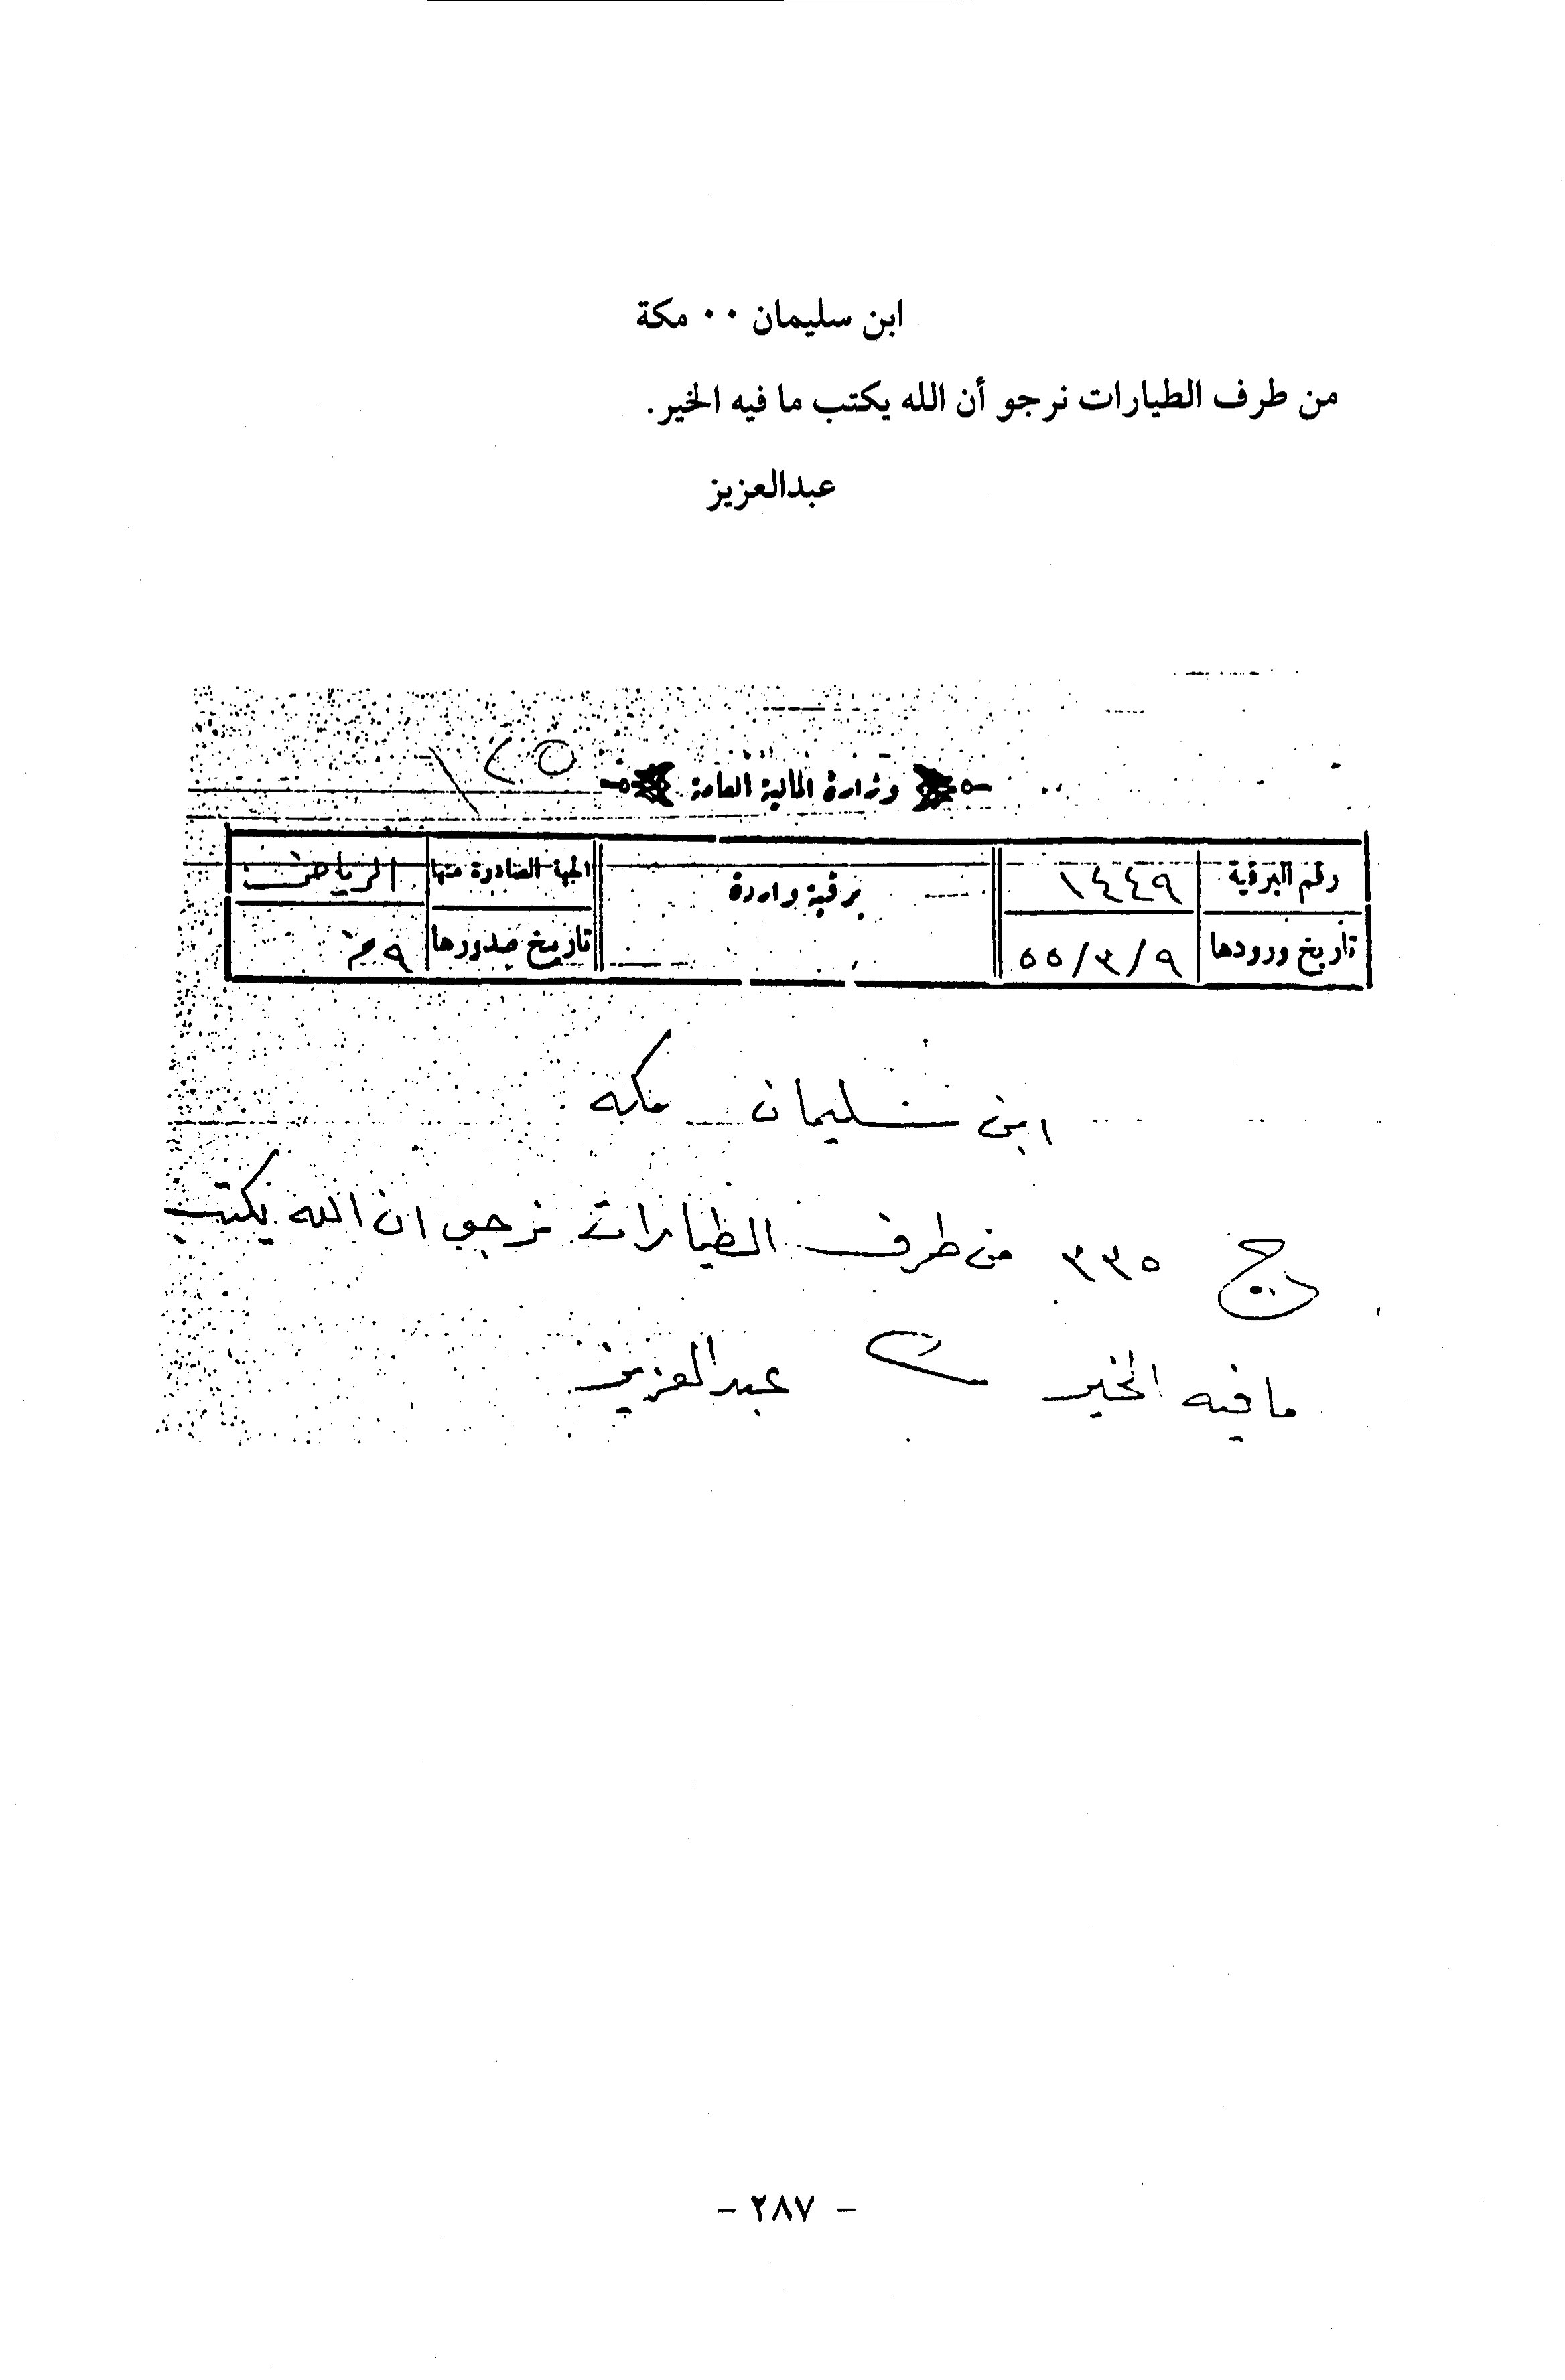 ابن سليمان ٠٠ مكة
من طرف الطيارات نرجو أن الله يكتب ما فيه الخير.
عبدالعزيز
وزارة المالية العامة
رقم البرقية ١٤٤٩ برقية واردة الجهة الصادرة منها الرياض
تاريخ ورودها ٥٥/٣/٩ تاريخ صدورها ٩ منه
ابن سليمان مكه
ج ٣٣٥ من طرف الطيارات نرجو ان الله يكتب
ما فيه الخير عبدالعزيز
- ٢٨٧ -